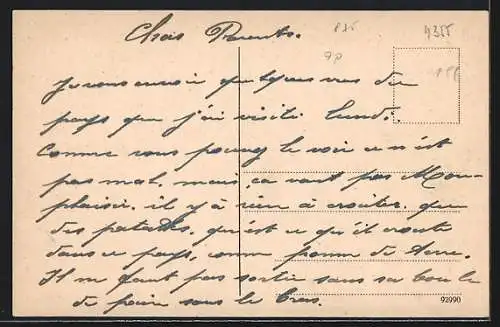 Chers Parents.
P85
4355
70
155
Je vous envoie quelques vues du
pays que j'ai visité lundi.
Comme vous pouvez le voir ce n'est
pas mal, mais, ça vaut pas Mon-
plaisir. il y a rien à croûter. que
des patates, qu'est ce qu'il croute
dans ce pays, comme pomme de terre.
Il ne faut pas sortir sans sa boule
de pain sous le bras.
92990